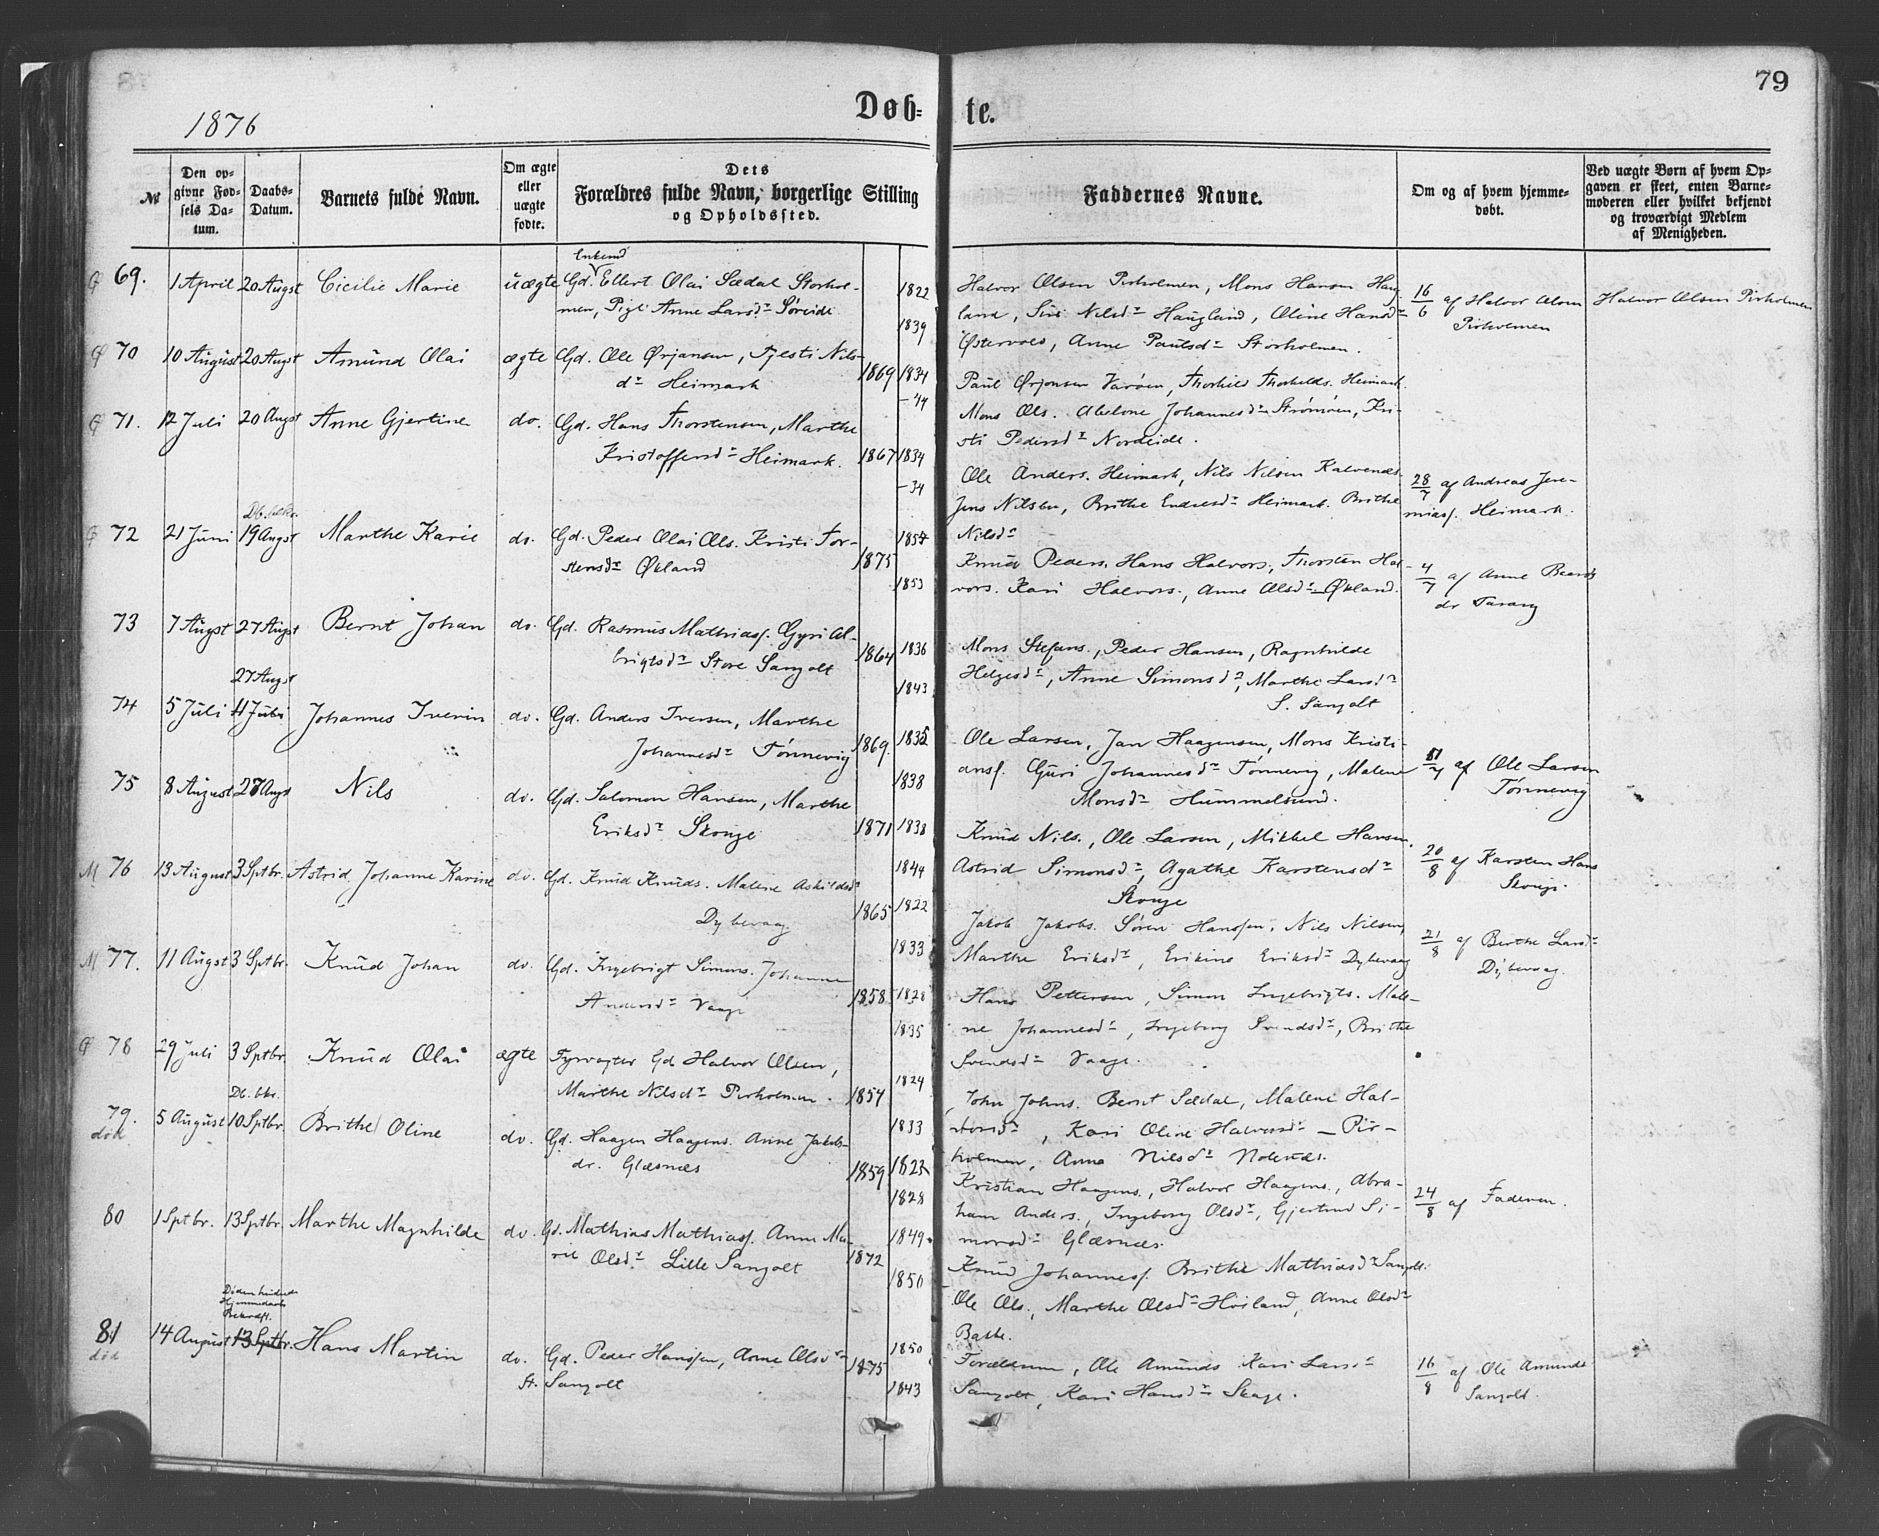 79
1876
Døb-
te.
№
Den op-
givne Fød-
sels Da-
tum.
Daabs-
Datum.
Barnets fulde Navn.
Om ægte
eller
uægte
fødte.
Dets
Forældres fulde Navn, borgerlige Stilling
og Opholdssted.
Faddernes Navne.
Om og af hvem hjemme-
døbt.
Ved uægte Børn af hvem Op-
gaven er skeet, enten Barne-
moderen eller hvilket bekjendt
og troværdigt Medlem
af Menigheden.
69. 1 April 20 Augst Cicilie Marie uægte
Enkemd
Gd. Ellert Olai Sædal Storhol-
men, Pige Anne Larsdr Søreide
1822
1839
Halvor Olsen Pirholmen, Mons Hansen Haug
land, Siri Nilsdr Haugland, Oline Hansdr
Østervold, Anne Paulsdr Storholmen.
16/6 af Halvor Olsen
Pirholmen
Halvor Olsen Pirholmen
70 10 August 20 Augst Amund Olai ægte
Gd. Ole Ørjansen, Kjesti Nils-
dr Heimark
1869
1834
-44
Paul Ørjansen Varøen, Thorkild Thorkilds. Heimark
Mons Ols. Abelone Johannesdr Strømøen, Kri-
sti Pedersdr Nordeide.
71. 12 Juli 20 Augst Anne Gjertine do.
Gd. Hans Thorstensen, Marthe
Kristoffersdr Heimark.
1867
1834
-34
Ole Anders. Heimark, Nils Nilsen Kalvenæs
Jens Nilsen, Brithe Endresdr Heimark. Brithe
Nilsdr
28/7 af Andreas Jere-
miass. Heimark.
72 21 Juni 19 Augst Marthe Karie do.
Gd. Peder Olai Ols. Kristi Tor-
stensdr Økland
1875
1854
1853
Knud Peders. Hans Halvors., Thorsten Hal-
vors. Kari Halvors., Anne Olsdr Økland.
4/7 af Anne Baards
dr Tarang
73 7 Augst 27 Augst Bernt Johan do.
Gd. Rasmus Mathiass. Gyri Al-
brigtsdr Store Sangolt
1864
1836
1843
Mons Stefans., Peder Hansen, Ragnhilde
Helgesdr, Anne Simonsdr, Marthe Larsdr
S. Sangolt
27 Augst
74 5 Juli 11 Juli Johannes Iverin do.
Gd. Anders Iversen, Marthe
Johannesdr Tønnevig
1869.
1835
1838
Ole Larsen, Jan Haagensen, Mons Kristi-
ans. Guri Johannesdr Tønnevig, Malene
Monsdr Hummelsund.
11/7 af Ole Larsen
Tønnevig
75 8 August 27 Augst Nils do.
Gd. Salomon Hansen, Marthe
Eriksdr Skouge
1871
1838
1844
Knud Nils., Ole Larsen, Mikkel Hansen,
Astrid Simonsdr, Agathe Karstensdr
Skouge
20/8 af Karsten Hans
Skouge.
M 76 13 August 3 Sptbr. Astrid Johanne Karine do.
Gd. Knud Knuds. Malene Askildsdr
Dybevaag
1865
1822
1833
Jakob Jakobs. Søren Hanssen, Nils Nilsen,
Marthe Eriksdr, Erikine Eriksdr Dybevaag
21/8 af Berthe Larsdr
Dybevaag.
M 77. 11 Augst 3 Sptbr. Knud Johan do.
Gd. Ingebrigt Simons. Johanne
Andersdr Vaage
1858
1828
1835
Hans Pettersen, Simon Ingebrigts. Male-
ne Johannesdr, Ingeborg Svendsdr, Brithe
Svendsdr Vaage.
78 29 Juli 3 Sptbr. Knud Olai ægte
Fyrvogter Gd Halvor Olsen,
Marthe Nilsdr Pirholmen.
1857
1824
1833
John Johns. Bernt Sædal, Malene Hal-
vorsdr, Kari Oline Halvorsdr – Pir-
holmen, Anna Nilsdr
79. 5 August 10 Sptbr. Brithe Oline do.
død
Gd. Haagen Haagens. Anne Jakobs-
dr. Glæsnæs
1859
1822
1828
Kristian Haagens., Halvor Haagens., Abra-
ham Anders., Ingeborg Olsdr, Gjertine Si-
monsdr Glæsnæs.
24/8 af Faderen.
80 1 Sptbr. 13 Sptbr. Marthe Magnhilde do.
Gd. Mathias Mathiass. Anne Ma-
rie Olsdr. Lille Sangolt
1872
1849.
1850
Knud Johanness. Brithe Mathiasdr Sangolt.
Ole Ols., Marthe Olsdr Høiland, Anne Olsdr
Bakke.
81 14 August 13 Sptbr. Hans Martin do.
død
Gd. Peder Hanssen, Anne Olsdr
St. Sangolt
1875
1850
1843
Forældrene, Ole Amunds Kari Larsdr
Sangolt, Kari Hansdr Skage.
16/8 af Ole Amunds
Sangolt.